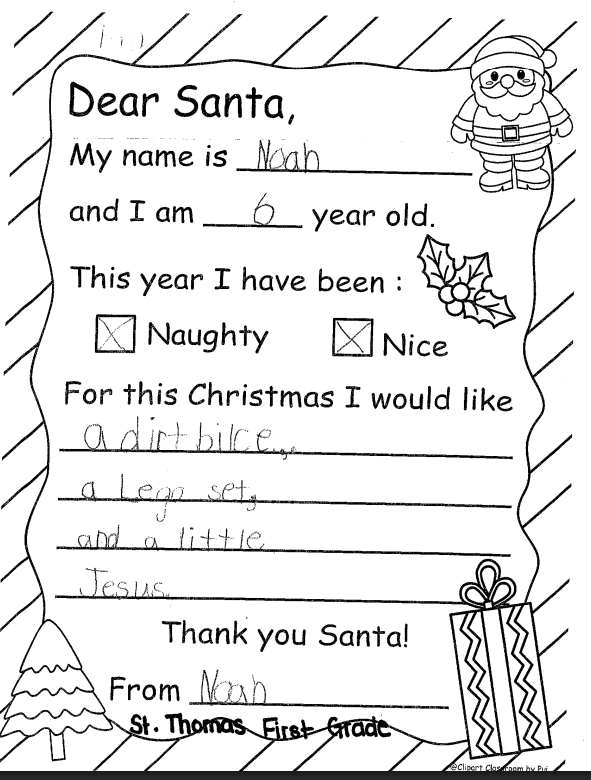 Dear Santa,
My name is Noah
and I am 6 year old.
This year I have been :
Naughty Nice
For this Christmas I would like
a dirt bilce,
a Lego set,
and a little
Jesus.
Thank you Santa!
From Noah
St. Thomas First Grade
@Clipart Classroom by Pui